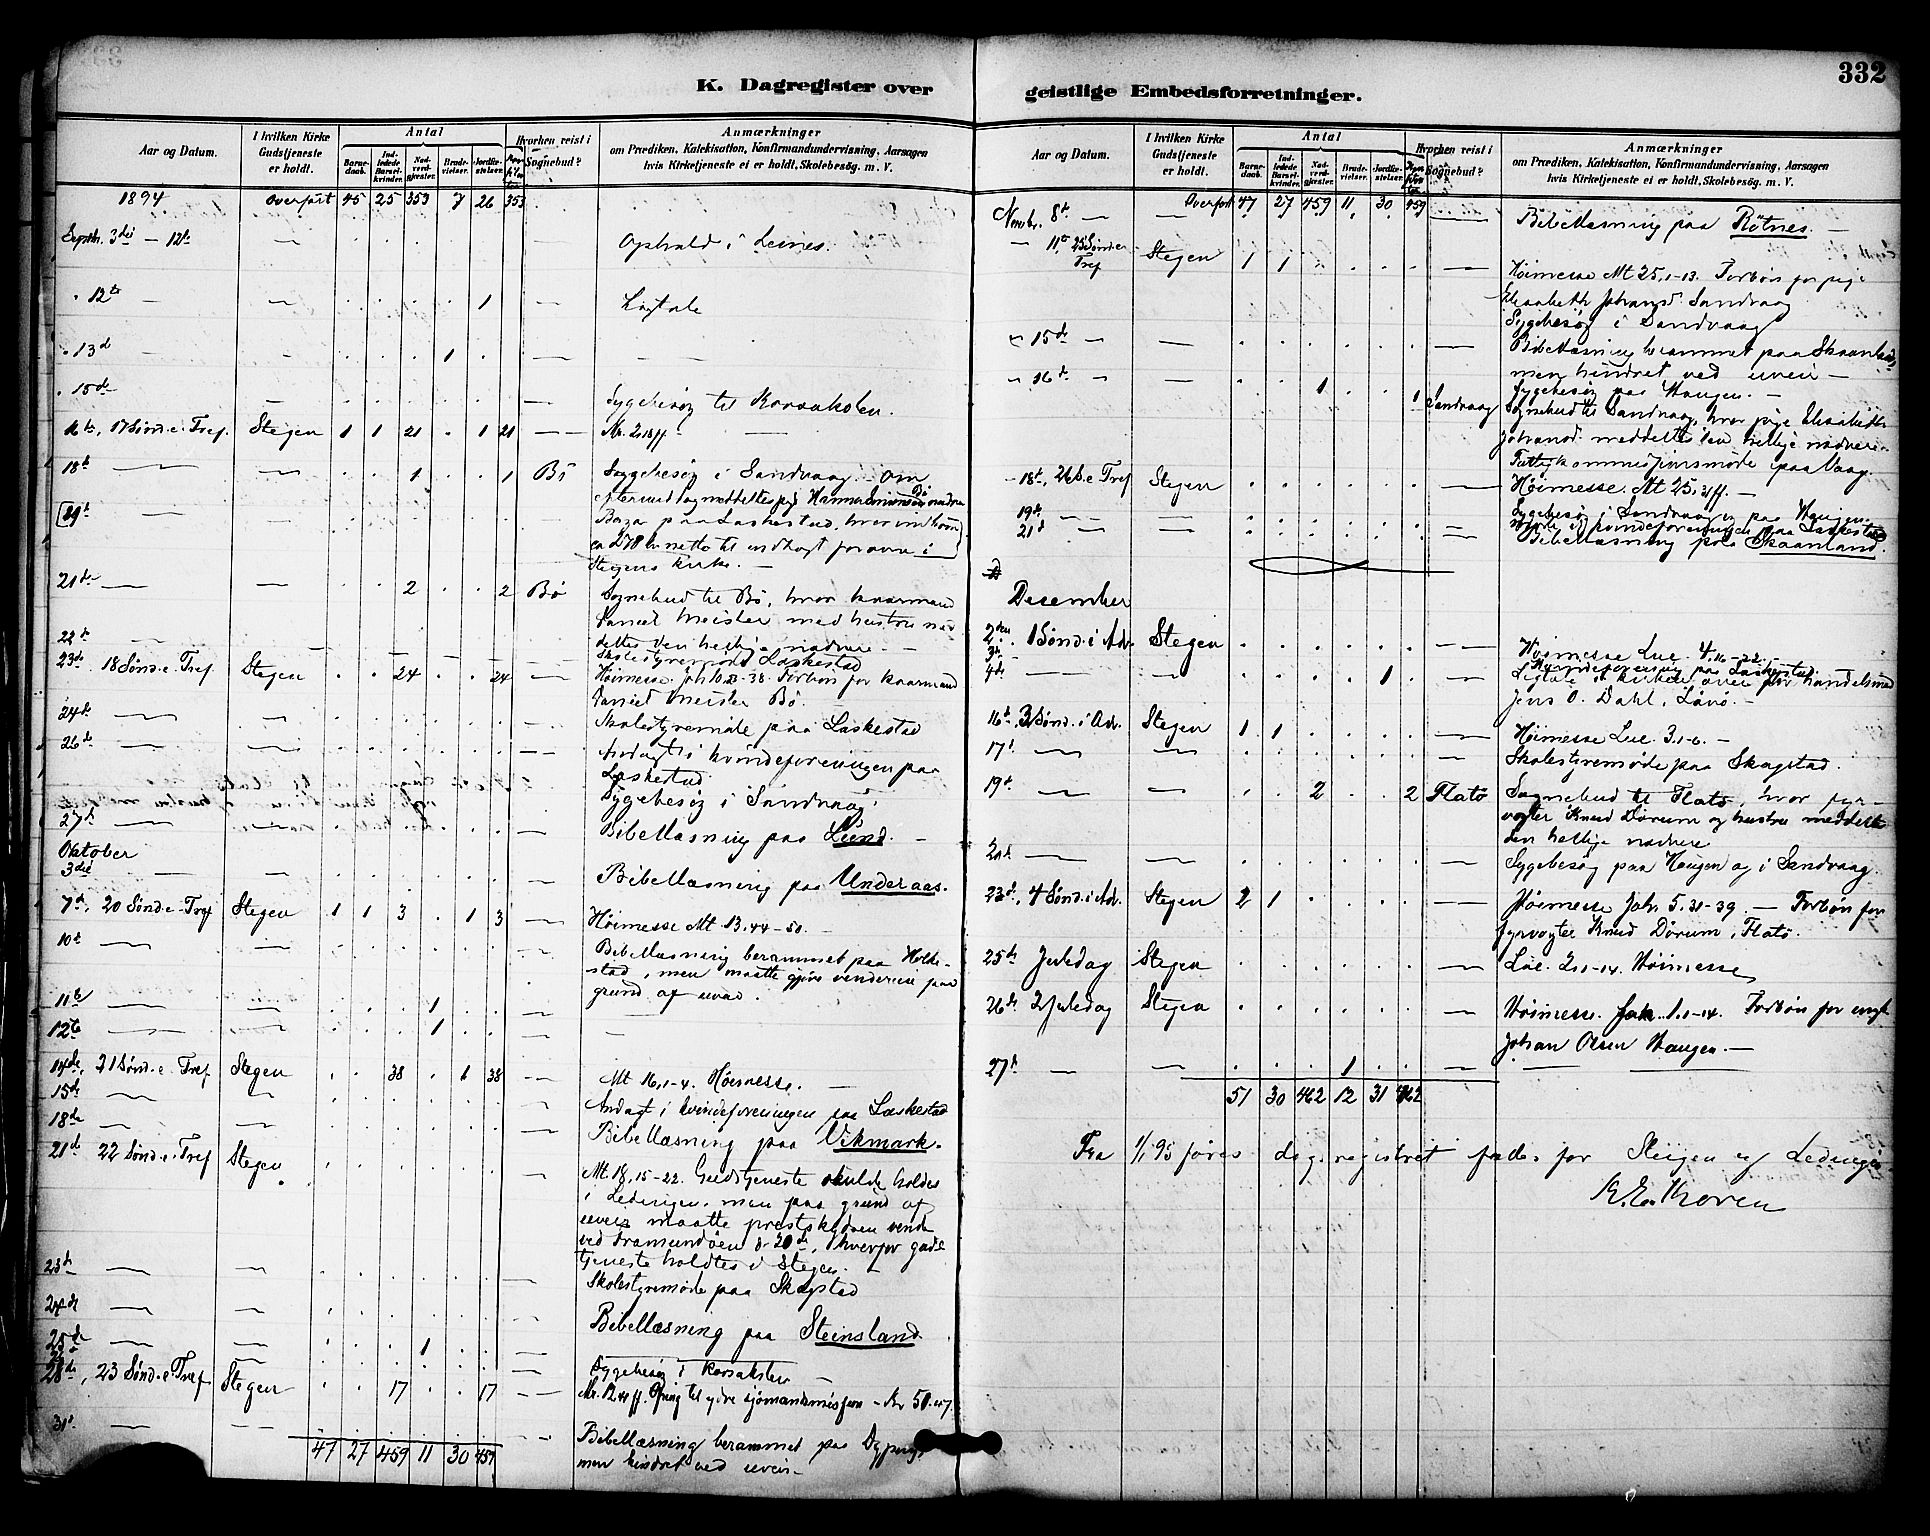 332
K. Dagregister over
geistlige Embedsforretninger.
Aar og Datum.
I hvilken Kirke Gudstjeneste er holdt.
Antal
Barne-daab.
Ind-ledede Barsel-kvinder.
Nad-verd-gjester.
Brude-vielser.
Jordfæ-stelser.
Hvorhen reist i Sognebud?
Anmærkninger
om Prædiken, Katekisation, Konfirmandundervisning, Aarsagen
hvis Kirketjeneste ei er holdt, Skolebesög. m. V.
1894 Overført 45 25 353 7 26 353
Septbr. 3die — 12te — Ophold i Leines.
" 12te — 1 — Ligtale
" 13d — 1 —
" 15de — Sygebesøg til Korsakslen.
16te, 17 Sønd. e. Tref. Stegen 1 1 21 . 1 21 — Mr. 2,18ff —
18de — 1 . . 1 Bö Sygebesøg i Sandvaag. Om
eftermiddag meddeltes pige Hanna Simonsen Bö nadv.
[19de — Bazar paa Laskestad, hvor indkom
ca 278 kr netto til indkøpt forovn i
Stegens kirke. —
21de — 2 . . 2 Bø Sognebud til Bø, hvor kaarmand
Daniel Meisler med hustru med
deltes den hellige nadvere. —
22de — Skolestyremøde Laskestad
23de 18 Sønd. e. Tref. Stegen . . 24 . . 24 — Høimesse. Joh 10.23-38. Forbøn for kaarmand
Daniel Meisler Bö.
24de — Skolestyremøde paa Laskestad
26de — Andagt i kvindeforeningen paa
Laskestad.
Sygebesøg i Sandvaag.
27de — Bibellæsning paa Lund. —
Oktober
3die — Bibellæsning paa Underaas.
7de, 20 Sønd. e. Tref Stegen 1 1 3 . 1 3 — Høimesse Mt. 13.44-50. —
10de — Bibellæsning berammet paa Holke-
stad, men maatte gjøre vendereise paa
grund af uveir.
11te — 1 —
12te — 1 — —
14de, 21 Sønd. e. Tref Stegen . . 38 . 1 38 — Mt 16,1-4. Høimesse. —
15de — Andagt i kvindeforeningen paa Laskestad
18de — Bibellæsning paa Vikmark.
21de 22 Sønd. e. Tref Stegen — Mt. 18,15-22. Gudstjeneste skulde holdes
i Lødingen, men paa grund af
uveir maatte prestskydsen vende
ved Tranundöen d. 20de, hvorfor guds
tjeneste holdtes i Stegen. —
23de — Skolestyremøde paa Skagstad
24de — Bibellæsning paa Steinsland.
25de — 1 —
Sygebesøg i Korsakslen —
28de, 23 Sønd. e. Tref Stegen . . 17 . . 17 — Mr. 12.41ff. Ofring til ydre sjömandsmisjon - Kr 50.47.
31te — Bibellæsning berammet paa
men hindret ved uveir—
47 27 459 11 30 459
Aar og Datum.
I hvilken Kirke Gudstjeneste er holdt.
Antal
Barne-daab.
Ind-ledede Barsel-kvinder.
Nad-verd-gjester.
Brude-vielser.
Jordfæ-stelser.
Hvorhen reist i Sognebud?
Anmærkninger
om Prædiken, Katekisation, Konfirmandundervisning, Aarsagen
hvis Kirketjeneste ei er holdt, Skolebesög. m. V.
Overført 47 27 459 11 30 459
Novbr. 8de — — Bibellæsning paa Røtnes. —
— 11te 25 Sønd. e. Tref Stegen 1 1 — Høimesse Mt 25,1-13. Forbøn for pige
Elisabeth Johansd. Sandvaag
Sygebesøg i Sandvaag
15de — Bibellæsning berammet paa Skaanland,
men hindret ved uveir —
16de — 1 . . 1 Sandvaag Sygebesøg paa Haugen. —
Sognebud til Sandvaag, hvor pige Elisabeth
Johansd. meddeltes den hellige nadvere.
Fattigkommissjonsmøde paa Vaag.
— 18de, 26 S. e. Tref Stegen — Høimesse. Mt 25.31ff. —
19de — Sygebesøg i Sandvaag og paa Haugen.
Møde i kvindeforeningen paa Laskestad
21de — Bibellæsning paa Skaanland.
December
2den. 1 Sønd. i Adv. Stegen — Høimesse Luc. 4.16-22.
3de — Kvindeforening paa Laskestad
4de — 1 — Ligtale i kirken over handelsmand
Jens O. Dahl, Løvø. —
16de, 3 Sønd. i Adv. Stegen 1 1 — Høimesse Luc. 3.1-6. —
17de — Skolestyremøde paa Skagstad.
19de — 2 . . 2 Flatø Sognebud til Flatø, hvor fyr-
vogter Knud Dørum og hustru meddeltes
den hellige nadvere
— Sygebesøg paa Haugen og i Sandvaag.
23de, 4 Sønd. i Adv. Stegen 2 1 — Høimesse Joh. 5.31-39. — Forbøn for
fyrvogter Knud Dörum, Flatø.
25de Juledag Stegen — Luc. 2.1-14. Høimesse
26de 2 Juledag Stegen — Høimesse. Joh. 1.1-14. Forbøn for ungk.
Johan Olsen Haugen. —
27de — 1 —
51 30 462 12 31 462
Fra 1/1 95 føres dagregistret fælles for Steigen og Lødingen
K. E. Koren